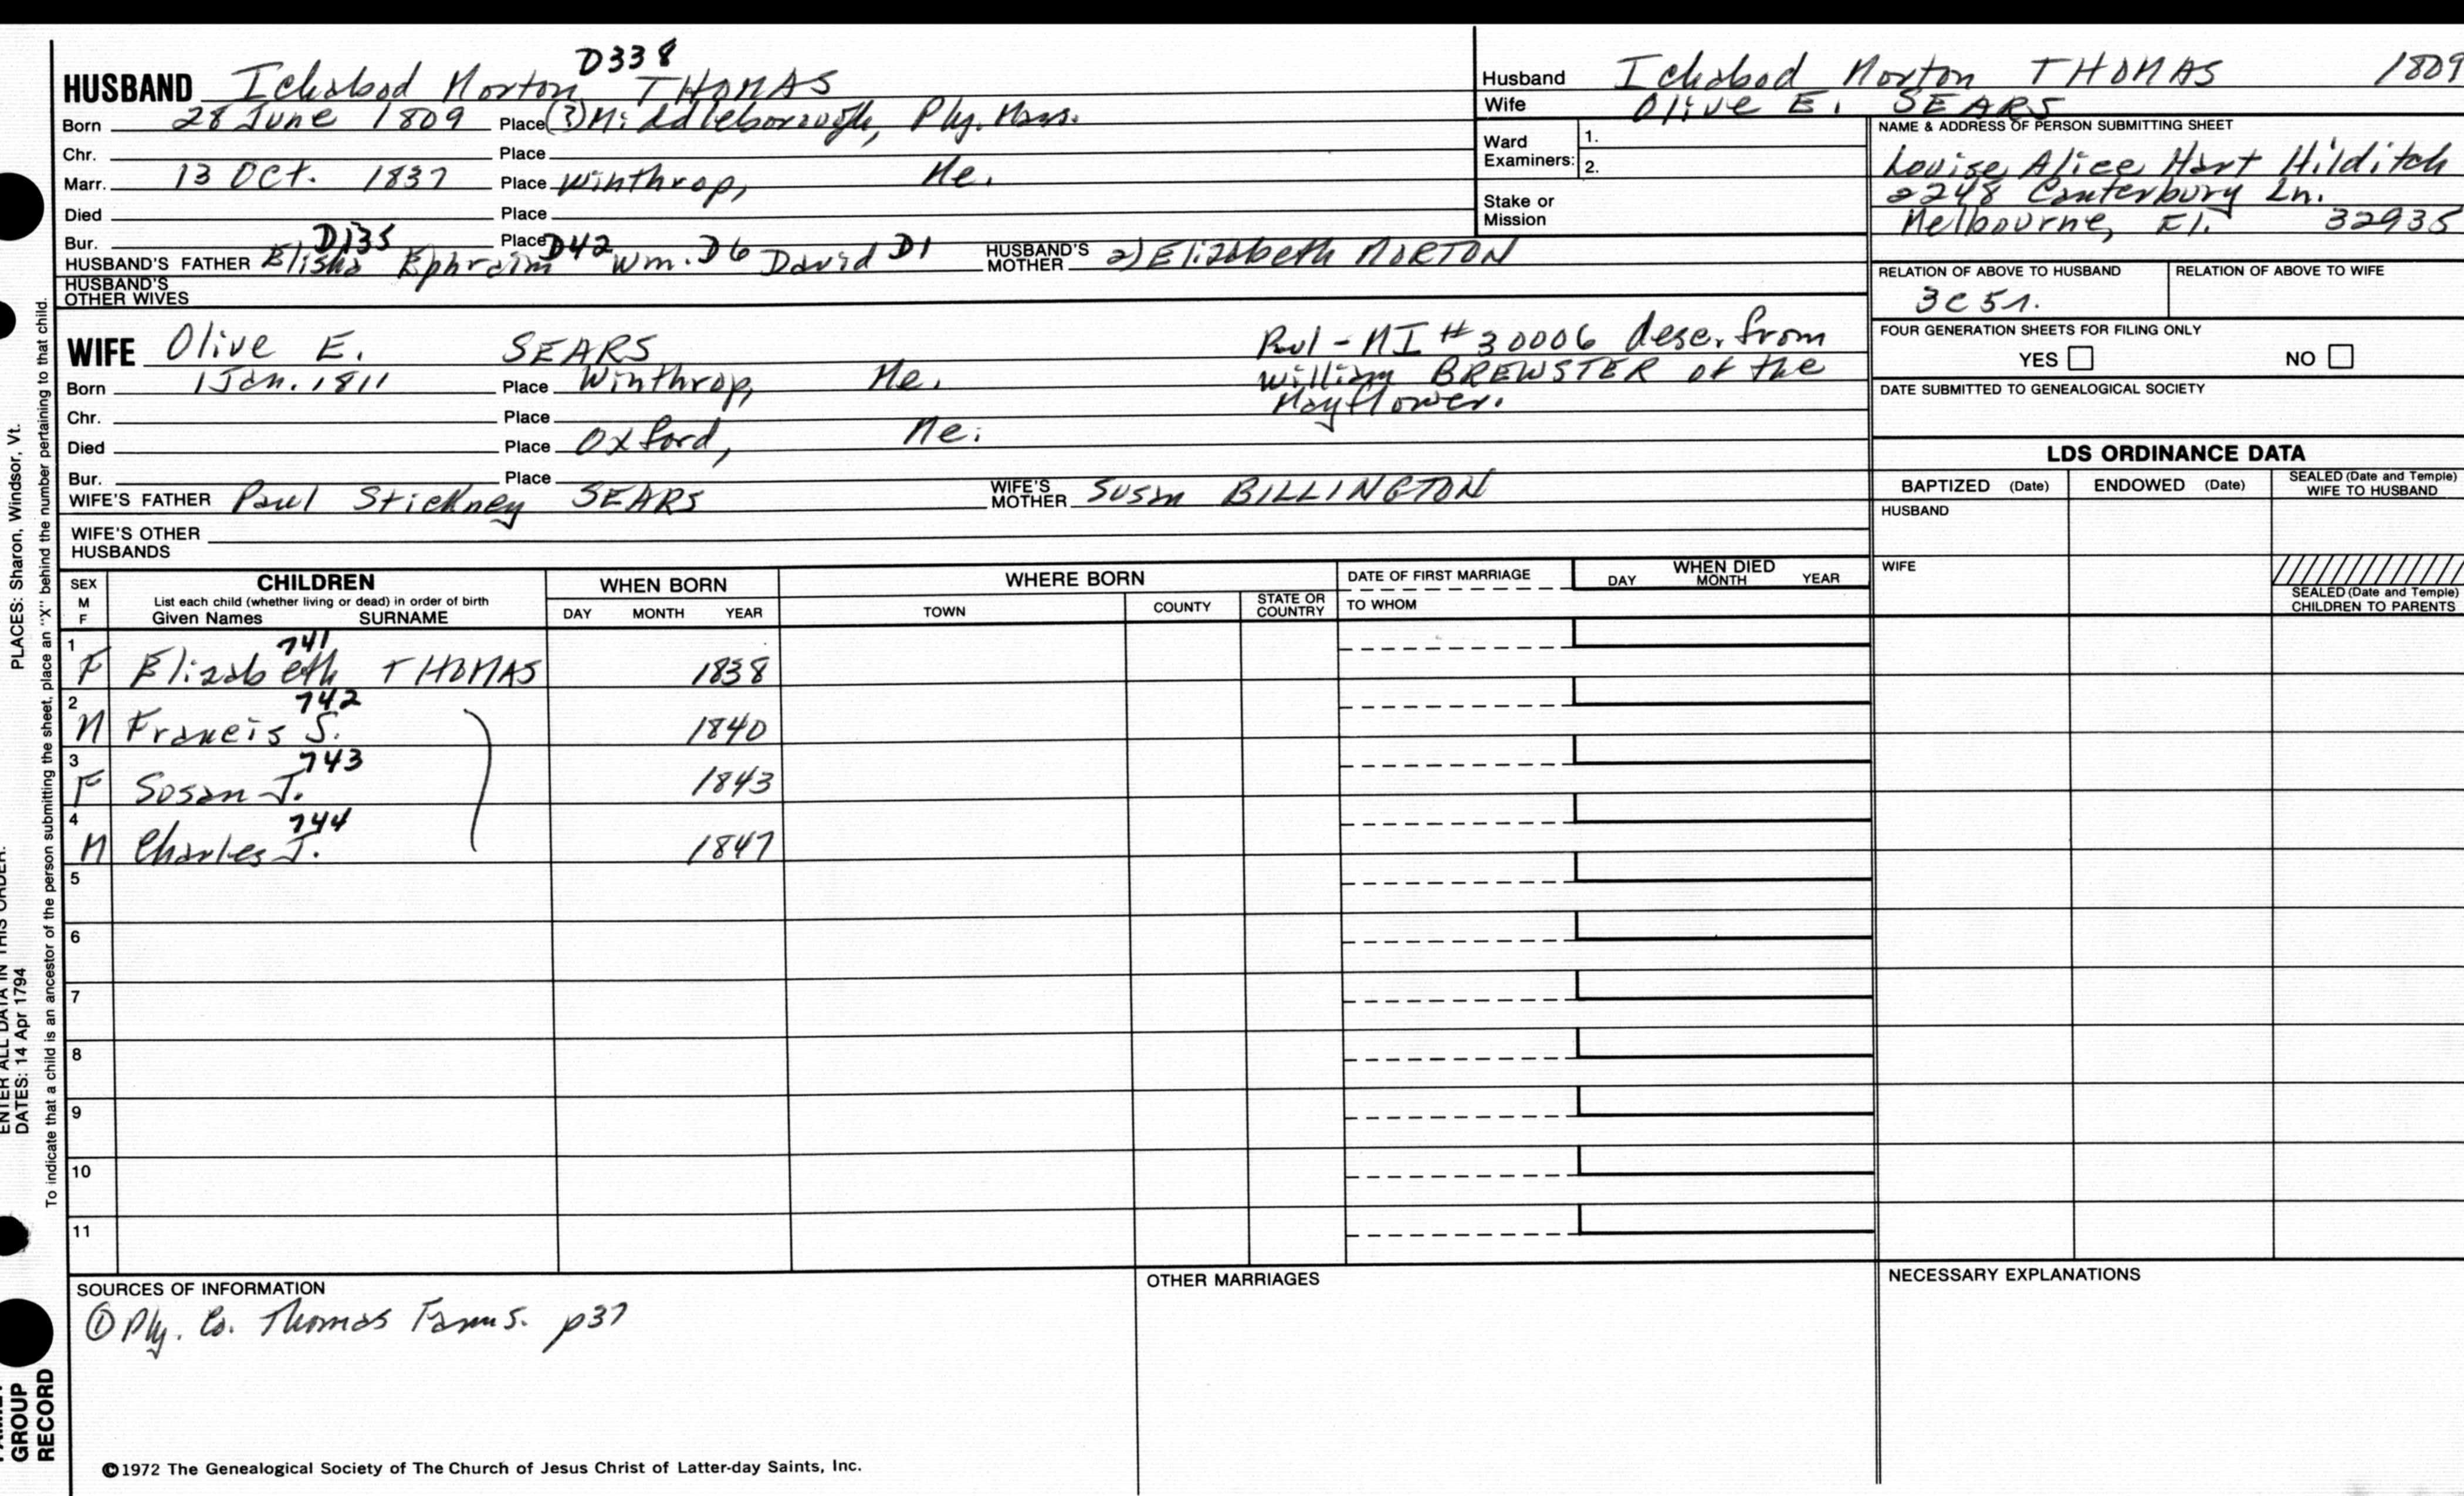 D338
HUSBAND Ichabod Morton THOMAS
Born 28 June 1809 Place (?) Middleborough, Ply. Mass.
Chr. Place
Marr. 13 Oct. 1837 Place Winthrop, Me.
Died Place
Bur. Place
D135 D42 D6 D1
HUSBAND'S FATHER Elisha Ephraim Wm. David HUSBAND'S MOTHER 2) Elizabeth MORTON
HUSBAND'S OTHER WIVES
WIFE Olive E. SEARS
Born 1 Jan. 1811 Place Winthrop, Me.
Chr. Place
Died Place Oxford, Me.
Bur. Place
- MI # 30006 desc. from
William BREWSTER of the
Mayflower.
WIFE'S FATHER Paul Stickney SEARS WIFE'S MOTHER Susan BILLINGTON
WIFE'S OTHER HUSBANDS
Husband Ichabod Morton THOMAS 1809
Wife Olive E. SEARS
Ward Examiners: 1.
2.
Stake or Mission
NAME & ADDRESS OF PERSON SUBMITTING SHEET
Louise Alice Hart Hilditch
2248 Canterbury Ln.
Melbourne, Fl. 32935
RELATION OF ABOVE TO HUSBAND RELATION OF ABOVE TO WIFE
3C5r.
FOUR GENERATION SHEETS FOR FILING ONLY
YES NO
DATE SUBMITTED TO GENEALOGICAL SOCIETY
LDS ORDINANCE DATA
BAPTIZED (Date) ENDOWED (Date) SEALED (Date and Temple) WIFE TO HUSBAND
HUSBAND
WIFE
SEALED (Date and Temple) CHILDREN TO PARENTS
SEX M F
CHILDREN
List each child (whether living or dead) in order of birth
Given Names SURNAME
WHEN BORN
DAY MONTH YEAR
WHERE BORN
TOWN COUNTY STATE OR COUNTRY
DATE OF FIRST MARRIAGE
TO WHOM
WHEN DIED
DAY MONTH YEAR
741
1 F Elizabeth THOMAS 1838
742
2 M Francis S. 1840
743
3 F Susan J. 1843
744
4 M Charles J. 1847
5
6
7
8
9
10
11
SOURCES OF INFORMATION
① Ply. Co. Thomas Fams. p37
OTHER MARRIAGES
NECESSARY EXPLANATIONS
©1972 The Genealogical Society of The Church of Jesus Christ of Latter-day Saints, Inc.
PLACES: Sharon, Windsor, Vt.
To indicate that a child is an ancestor of the person submitting the sheet, place an "X" behind the number pertaining to that child.
ENTER ALL DATA IN THIS ORDER:
DATES: 14 Apr 1794
GROUP
RECORD